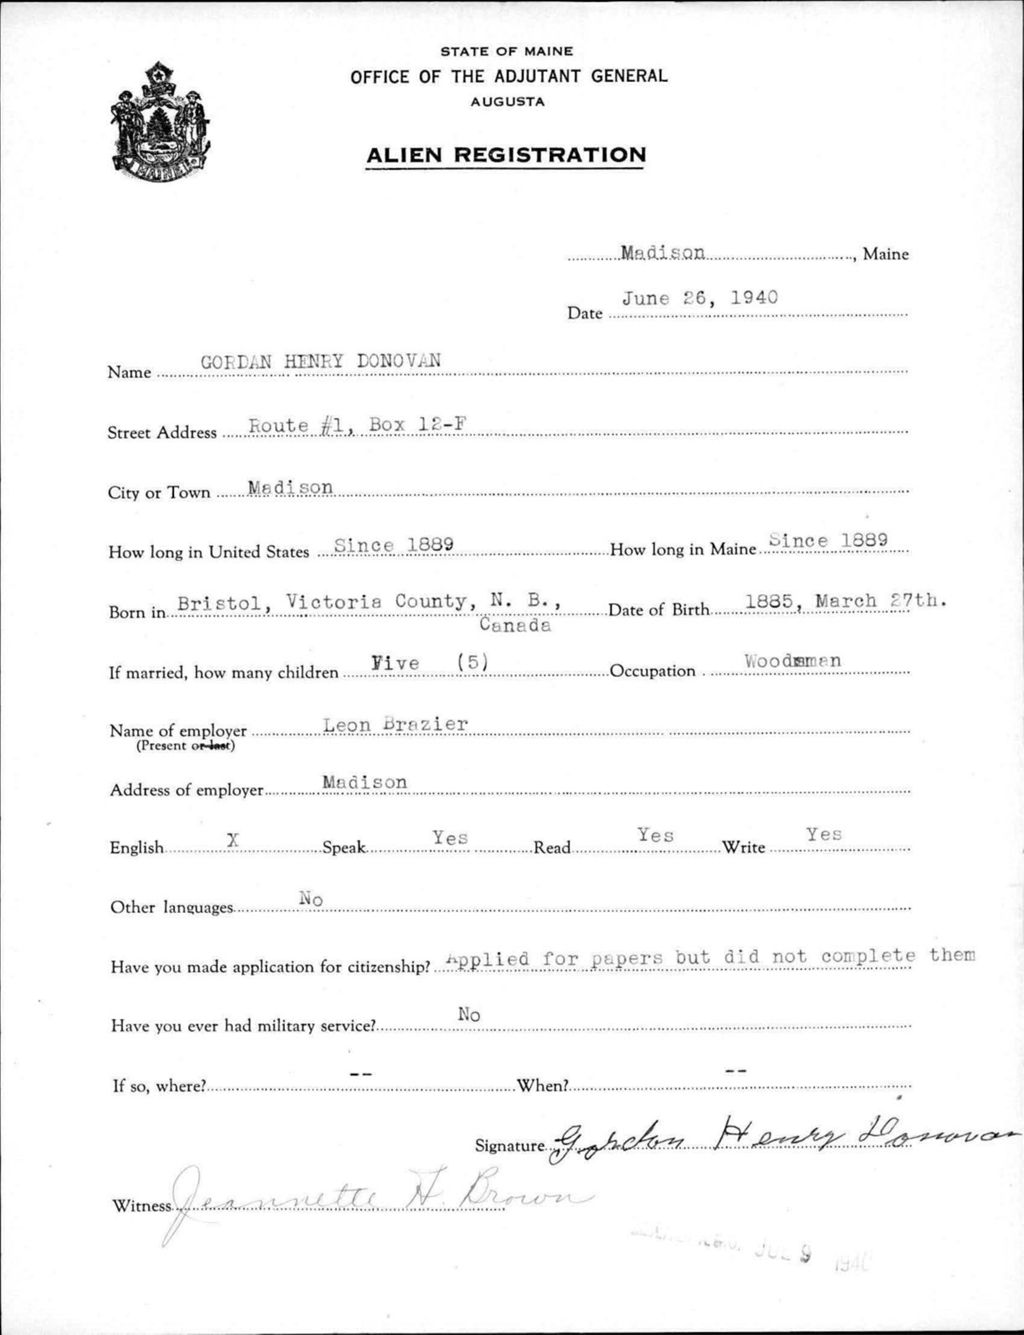 STATE OF MAINE
OFFICE OF THE ADJUTANT GENERAL
AUGUSTA
ALIEN REGISTRATION
Madison, Maine
Date June 26, 1940
Name GORDAN HENRY DONOVAN
Street Address Route #1, Box 12-F
City or Town Madison
How long in United States Since 1889 How long in Maine Since 1889
Born in Bristol, Victoria County, N. B., Date of Birth 1885, March 27th.
Canada
If married, how many children Five (5) Occupation Woodsman
Name of employer Leon Brazier
(Present or last)
Address of employer Madison
English X Speak Yes Read Yes Write Yes
Other languages No
Have you made application for citizenship? Applied for papers but did not complete them
Have you ever had military service? No
If so, where? -- When? --
Signature Gordon Henry Donovan
Witness Jeannette H Brown
JUL 9 1940